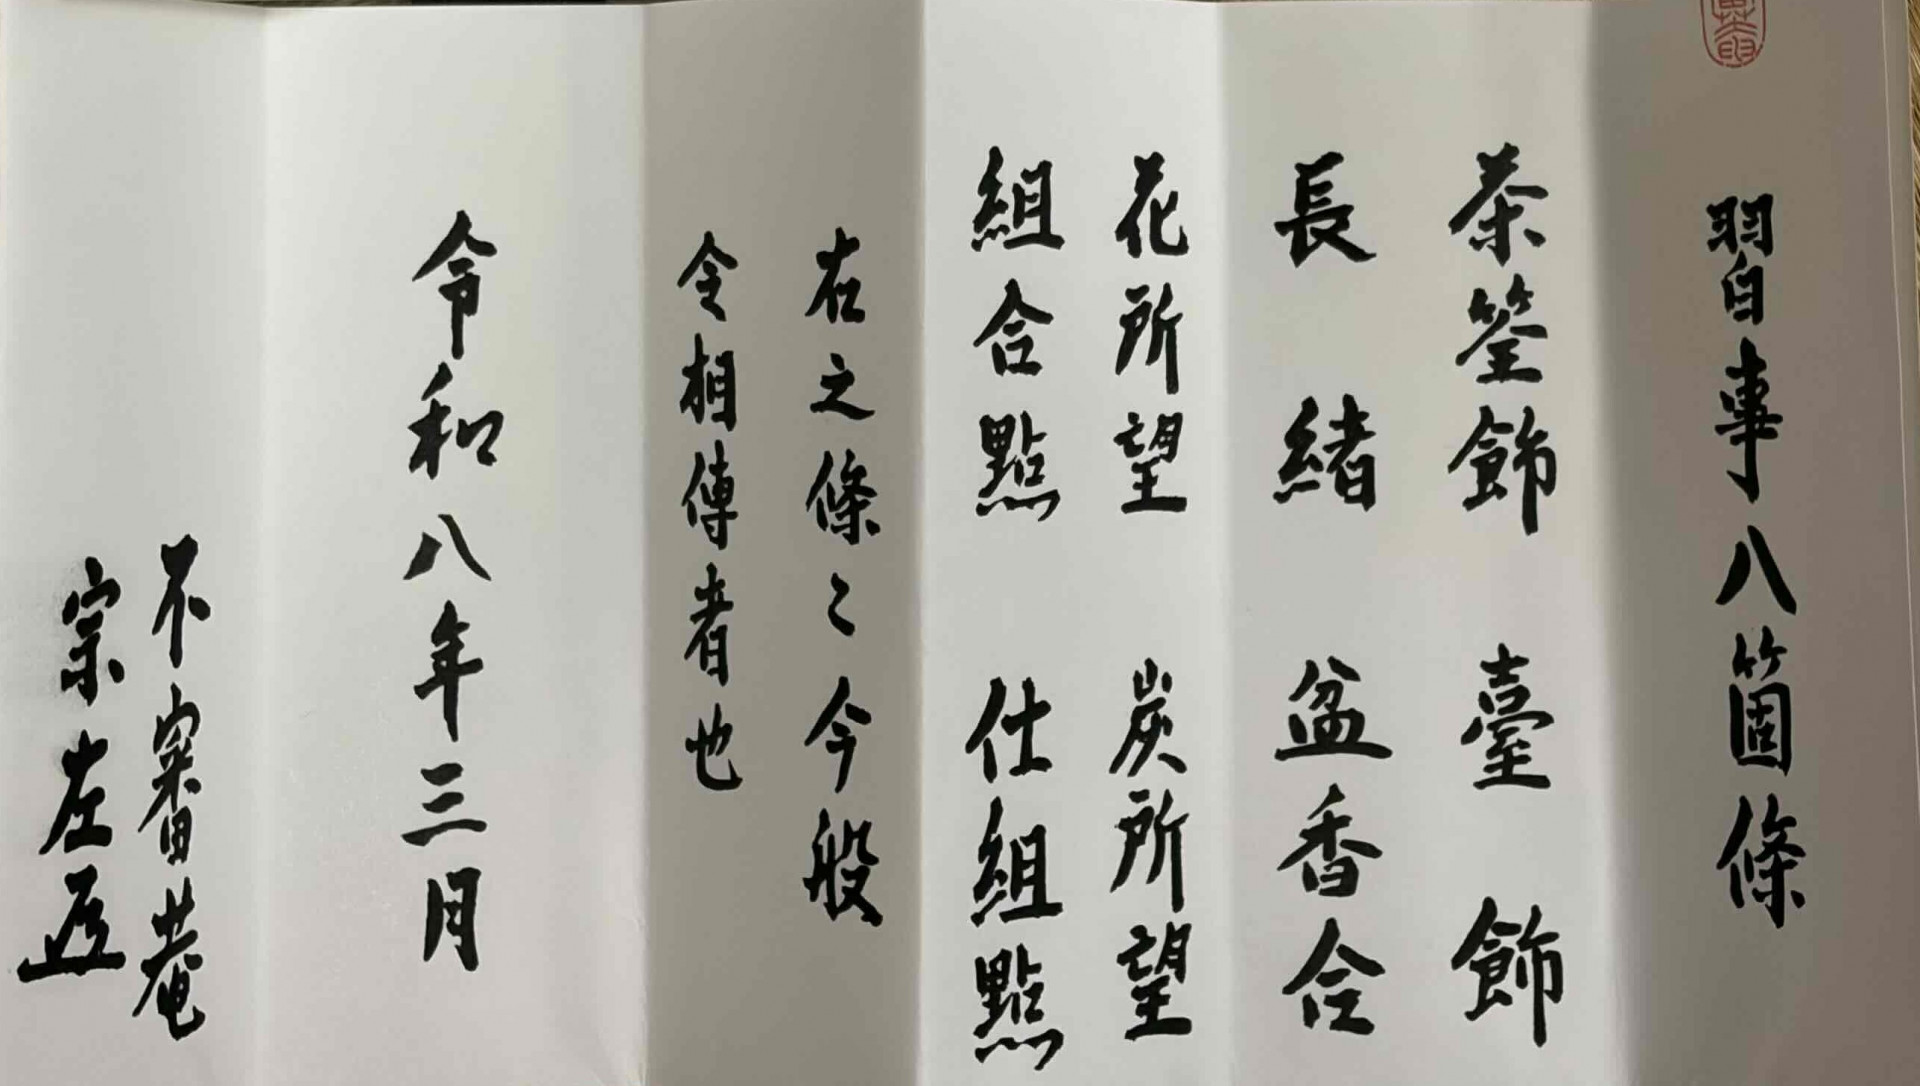 習事八箇條
茶筌飾 臺飾
長緒 盆香合
花所望 炭所望
組合點 仕組點
右之條々今般
令相傳者也
令和八年三月
不審菴
宗左